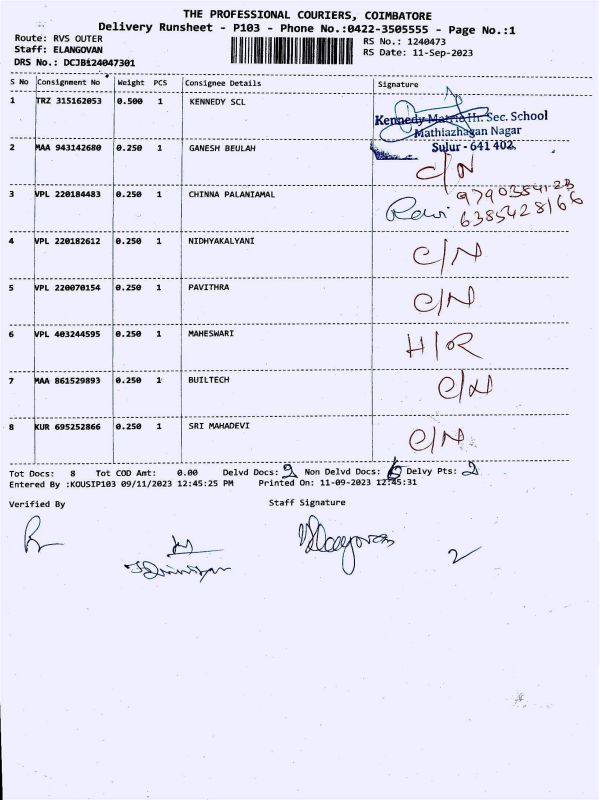 THE PROFESSIONAL COURIERS, COIMBATORE
Delivery Runsheet - P103 - Phone No.:0422-3505555 - Page No.:1
Route: RVS OUTER
RS No.: 1240473
Staff: ELANGOVAN
RS Date: 11-Sep-2023
DRS No.: DCJBi24047301
S No Consignment No Weight PCS Consignee Details Signature
1 TRZ 315162053 0.500 1 KENNEDY SCL
Kennedy Matric Hr. Sec. School
Mathiazhagan Nagar
Sulur - 641 402.
2 MAA 943142680 0.250 1 GANESH BEULAH C/N
3 VPL 220184483 0.250 1 CHINNA PALANIAMAL Ravi
6385428166
4 VPL 220182612 0.250 1 NIDHYAKALYANI C/N
5 VPL 220070154 0.250 1 PAVITHRA C/N
6 VPL 403244595 0.250 1 MAHESWARI H/R
7 MAA 861529893 0.250 1 BUILTECH C/N
8 KUR 695252866 0.250 1 SRI MAHADEVI C/N
Tot Docs: 8 Tot COD Amt: 0.00 Delvd Docs: 2 Non Delvd Docs: 6 Delvy Pts: 2
Entered By :KOUSIP103 09/11/2023 12:45:25 PM Printed On: 11-09-2023 12:45:31
Verified By Staff Signature
2